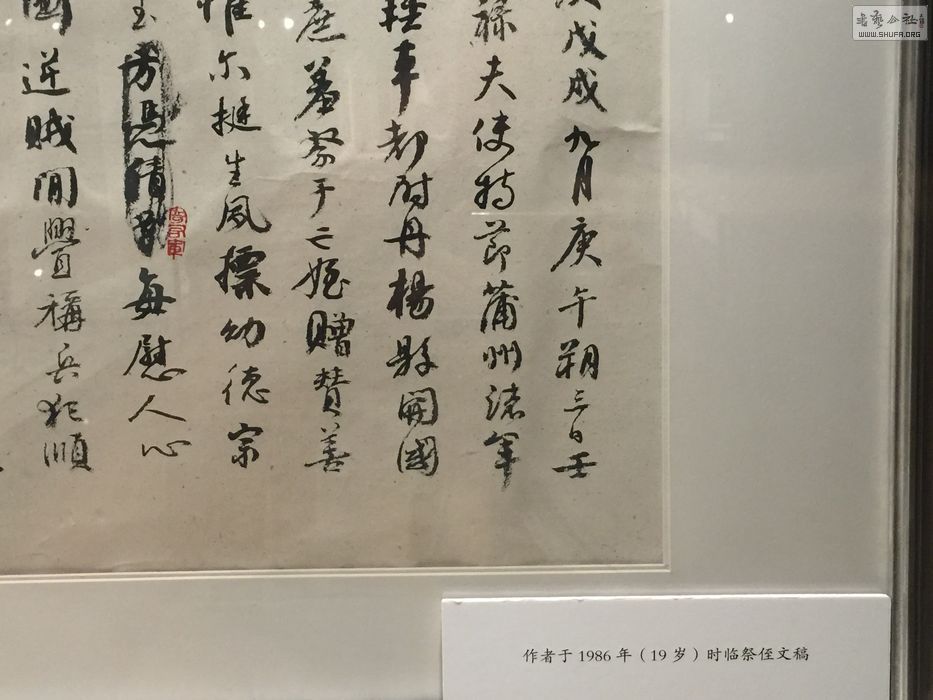 戊戌九月庚午朔三日壬
祿夫使持節蒲州諸軍
輕車都尉丹楊縣開國
庶羞祭于亡姪贈贊善
惟尔挺生夙標幼德宗
玉方憑積善每慰人心
逆賊閒釁稱兵犯順
作者于 1986 年（19 岁）时临祭侄文稿
書藝公社
WWW.SHUFA.ORG